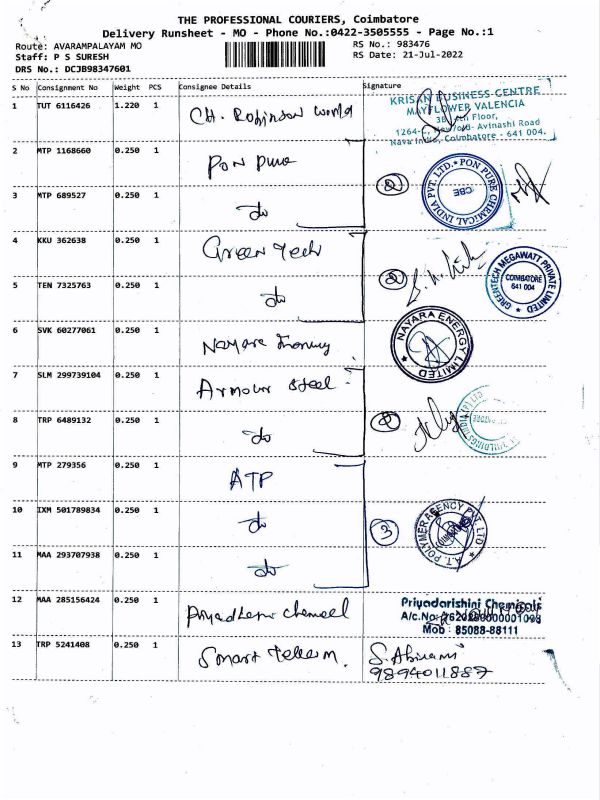 THE PROFESSIONAL COURIERS, Coimbatore
Delivery Runsheet - MO - Phone No.:0422-3505555 - Page No.:1
Route: AVARAMPALAYAM MO
RS No.: 983476
Staff: P S SURESH
RS Date: 21-Jul-2022
DRS No.: DCJB98347601
S No Consignment No Weight PCS Consignee Details Signature
1 TUT 6116426 1.220 1 CH. Robinson World
KRISHNA BUSINESS CENTRE
MAYFLOWER VALENCIA
Floor,
Avinashi Road
Nava India, Coimbatore - 641 004.
2 MTP 1168660 0.250 1 Pon pure
PON PURE CHEMICAL INDIA PVT. LTD.
CBE
2
3 MTP 689527 0.250 1 do
4 KKU 362638 0.250 1 Green Tech
GREENTECH MEGAWATT PRIVATE LIMITED
COIMBATORE
641 004
2
5 TEN 7325763 0.250 1 do
6 SVK 60277061 0.250 1 Nayara Energy
NAYARA ENERGY LIMITED
7 SLM 299739104 0.250 1 Armour Steel
8 TRP 6489132 0.250 1 do
2
BUILDINGS INDIA (P) LTD
9 MTP 279356 0.250 1 ATP
10 IXM 501789834 0.250 1 do
3
A.T. POLYMER AGENCY PVT. LTD
11 MAA 293707938 0.250 1 do
12 MAA 285156424 0.250 1
Priyadarishini Chemicals
A/c.No:
Mob : 85088-88111
13 TRP 5241408 0.250 1 Smart Telecom.
S. Abirami
9894011887